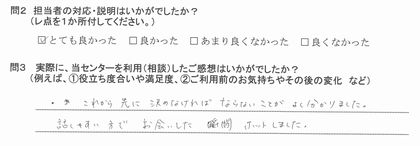 問2 担当者の対応・説明はいかがでしたか?
(レ点を1か所付してください。)
☑とても良かった □良かった □あまり良くなかった □良くなかった
問3 実際に、当センターを利用(相談)したご感想はいかがでしたか?
(例えば、①役立ち度合いや満足度、②ご利用前のお気持ちやその後の変化 など)
・これから先に決めなければならないことがよく分かりました。
話しやすい方でお会いした瞬間ホットしました。